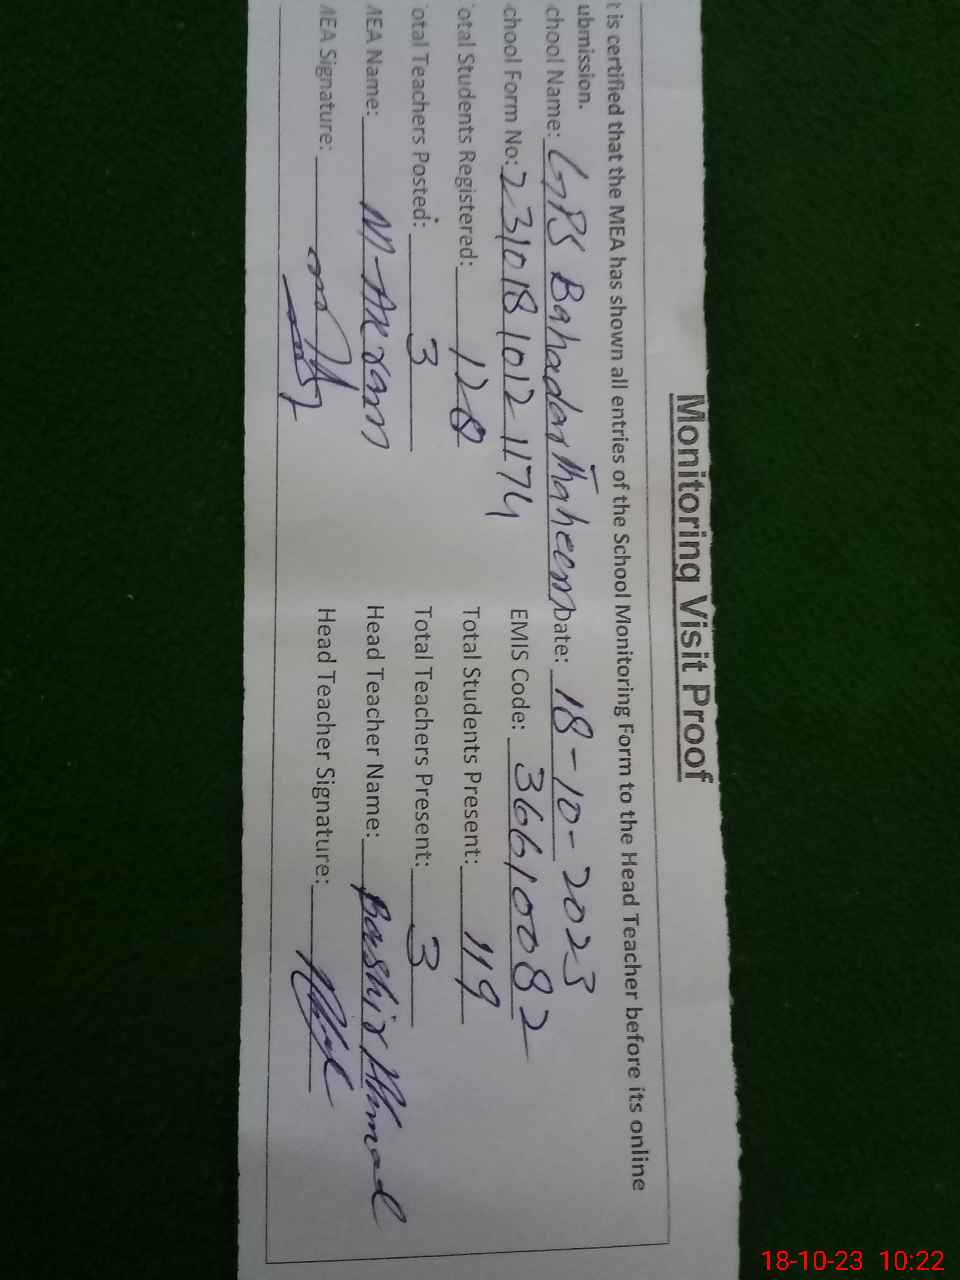 Monitoring Visit Proof
t is certified that the MEA has shown all entries of the School Monitoring Form to the Head Teacher before its online
ubmission.
chool Name: GPS Bahadar Maheem Date: 18-10-2023
chool Form No: 23101810121174 EMIS Code: 36610082
otal Students Registered: 128 Total Students Present: 119
otal Teachers Posted: 3 Total Teachers Present: 3
MEA Name: M-Akram Head Teacher Name: Bashir Ahmad
MEA Signature: Head Teacher Signature:
18-10-23 10:22